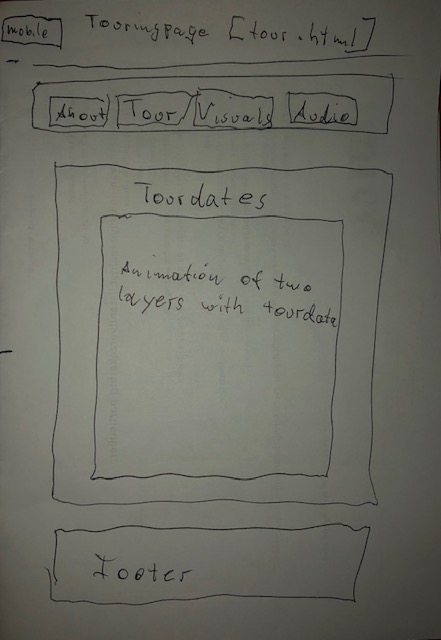 mobile
Touringpage [tour.html]
About Tour Visuals Audio
Tourdates
Animation of two
layers with tourdata
Footer